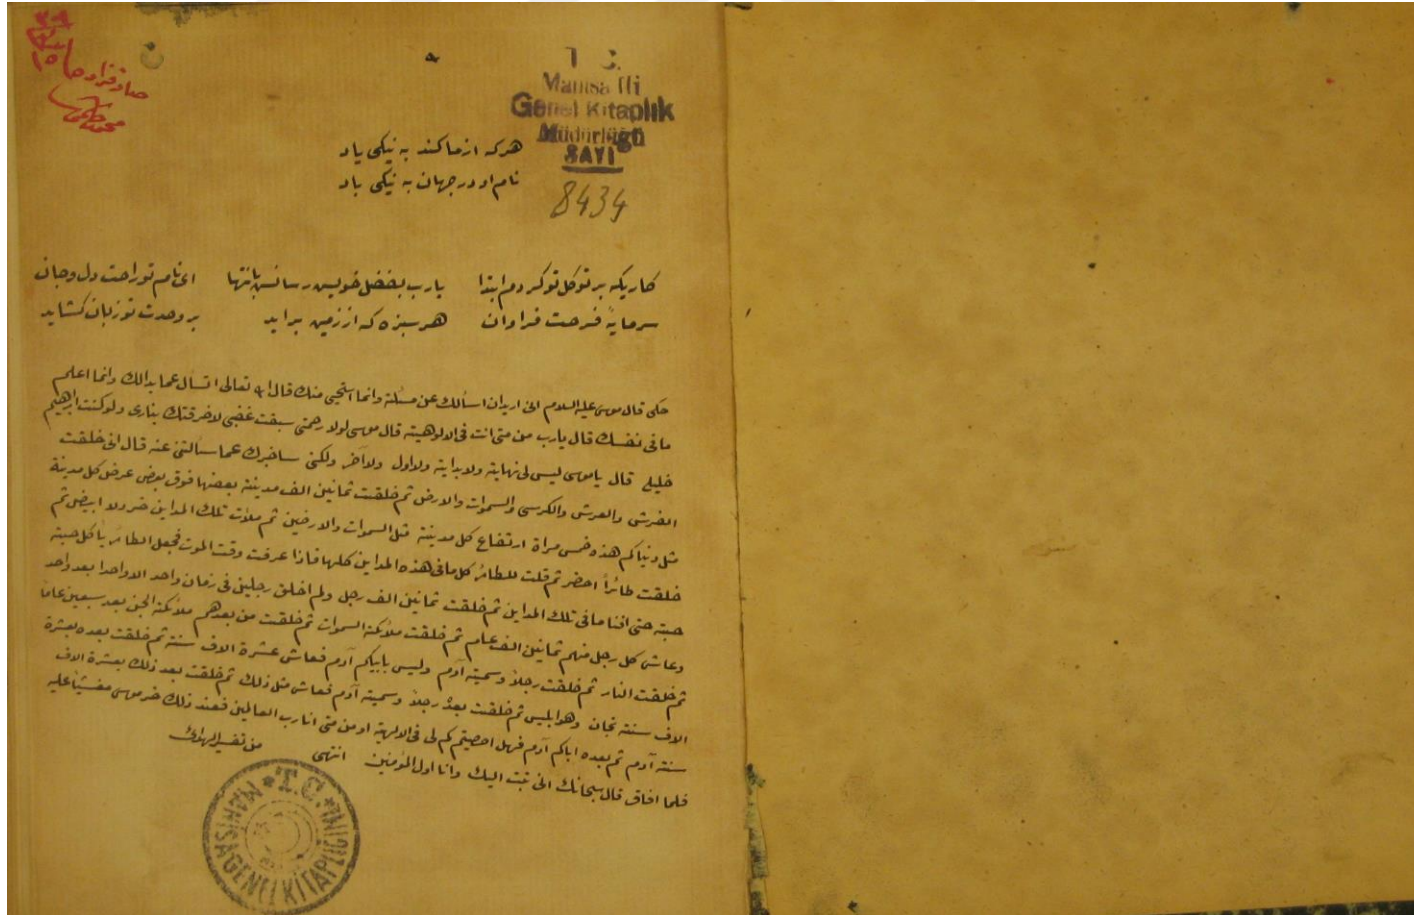 ٣٩
١٥
T. C.
Manisa Ili
Genel Kitaplık
Müdürlüğü
SAYI
8434
هركه از ما كند به نيكى ياد
نام او در جهان به نيكى باد
كاريكه بر توكل تو كردم ابتدا يارب بفضل خويس رسانس بانتها اى نام تو راحت دل وجان
سرمايۀ فرحت فراوان هر سبزه كه از زمين برايد بر وحدت تو زبان كشايد
حكى قال موسى عليه السلام انى اريد ان اسألك عن مسئلة وانما استحيى منك قال الله تعالى اتسأل عما بدالك وانما اعلم
مافى نفسك قال يارب من متى انت فى الالوهية قال موسى لولا رحمتى سبقت غضبى لاحرقتك بنارى ولو كنت ابرهيم
خليلى قال ياموسى ليس لى نهاية ولا بداية ولا اول ولا اخر ولكنى ساخبرك عما سألتنى عنه قال انى خلقت
العرش والكرسى والسموات والارض ثم خلقت ثمانين الف مدينة بعضها فوق بعض عرض كل مدينة
مثل دنياكم هذه خمس مراة ارتفاع كل مدينة مثل السموات والارضين ثم ملأت تلك المداين خردلا ابيض ثم
خلقت طائراً اخضر ثم قلت للطائر كل مافى هذه المداين كلها فاذا عرفت وقت الموت فجعل الطائر يأكل حبة
حبة حتى افنا مافى تلك المداين ثم خلقت ثمانين الف رجل ولم اخلق رجلين فى زمان واحد الا واحدا بعد واحد
وعاش كل رجل منهم ثمانين الف عام ثم خلقت ملائكة السموات ثم خلقت من بعدهم ملائكة الجن بعد سبعين عاما
ثم خلقت النار ثم خلقت رجلا وسميته آدم وليس بابيكم آدم فعاش عشرة الاف سنة ثم خلقت بعده بعشرة
الاف سنة جان وهو ابليس ثم خلقت بعده رجلا وسميته آدم فعاش مثل ذلك ثم خلقت بعد ذلك بعشرة الاف
سنة آدم ثم بعده اباكم آدم فهل احصيتم كم لى فى الالهية او من متى انا رب العالمين فعند ذلك خر موسى مغشيا عليه
فلما افاق قال سبحانك انى تبت اليك وانا اول المؤمنين انتهى من تفسير
T.C. MANİSA GENEL KİTAPLIĞINI